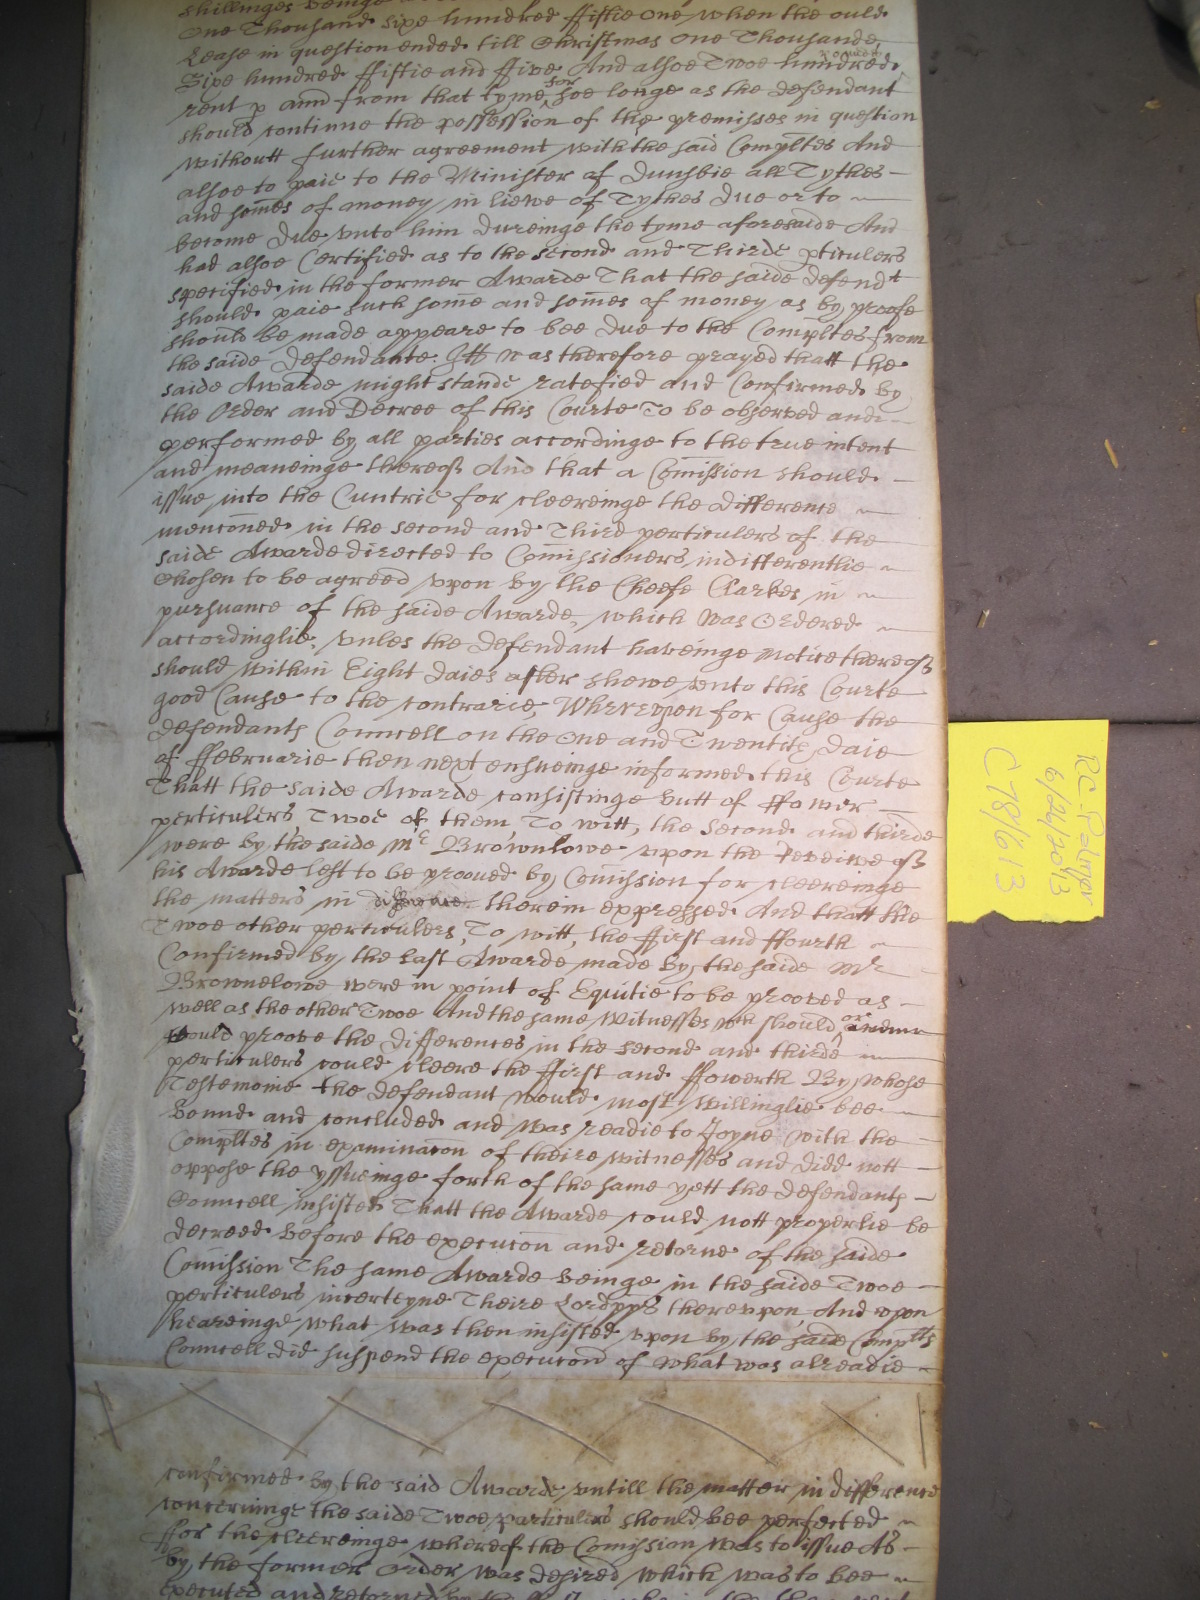 shillinges beinge
One Thousand sixe hundred ffiftie one when the ould
Lease in question ended till Christmas One Thousande
Sixe hundred ffiftie and ffive And alsoe Twoe hundred pounds
rent p ann from that tyme for soe longe as the defendant
should continue the possession of the premisses in question
withoutt further agreement with the said Compltes And
alsoe to paie to the Minister of Dunsbie all Tythes
and somes of money in liewe of Tythes due or to
become due unto him dureinge the tyme aforesaide And
had alsoe Certified as to the second and Thirde pticulers
specified in the former Awarde That the saide defendt
should paie such some and somes of money as by proofe
should be made appeare to bee due to the Compltes from
the saide defendante. Itt was therefore prayed thatt the
saide Awarde might stande ratefied and Confirmed by
the Order and Decree of this Courte To be observed and
performed by all parties accordinge to the true intent
and meaneinge thereof And that a Comission should
issue into the Cuntrie for cleereinge the difference
mencioned in the second and Third perticulers of the
saide Awarde directed to Comissioners indifferentlie
chosen to be agreed upon by the Cheefe Clarkes in
pursuance of the saide Awarde, which was Ordered
accordinglie, unles the defendant haveinge Notice thereof
should within Eight daies after shewe unto this Courte
good Cause to the contrarie, Whereupon for Cause the
defendants Councell on the One and Twentith daie
of ffebruarie then next ensueinge informed this Courte
Thatt the saide Awarde consistinge butt of ffower
perticulers Twoe of them To witt, the second and thirde
were by the saide Mr Brownlowe upon the Reveiwe of
his Awarde left to be prooved by Comission for cleereinge
the matters in difference therein expressed And thatt the
Twoe other perticulers, To witt, the ffirst and ffourth
Confirmed by the last Awarde made by the saide Mr
Brownelowe were in point of Equitie to be prooved as
well as the other Twoe And the same Witnesses wch should or
would proove the differences in the second and thirde
perticulers could cleere the ffirst and ffowerth By whose
Testemonie the defendant would most willinglie bee
bound and concluded and was readie to Joyne with the
Compltes in examinacon of theire witnesses and didd nott
oppose the yssueinge forth of the same yett the defendants
Councell insisted Thatt the Awarde could nott properlie be
decreed before the execucon and retorne of the saide
Comission The same Awarde beinge in the saide Twoe
perticulers incerteyne Theire Lordpps thereupon And upon
heareinge what was then insisted upon by the saide Complts
Councell did suspend the execucon of what was alreadie
confirmed by the said Awarde untill the matter in difference
concerninge the saide Twoe particulers should bee perfected
ffor the cleereinge whereof the Comission was to issue As
by the former Order was desired which was to bee
executed and retorned by the
RC Palmer
6/24/2013
C78/613